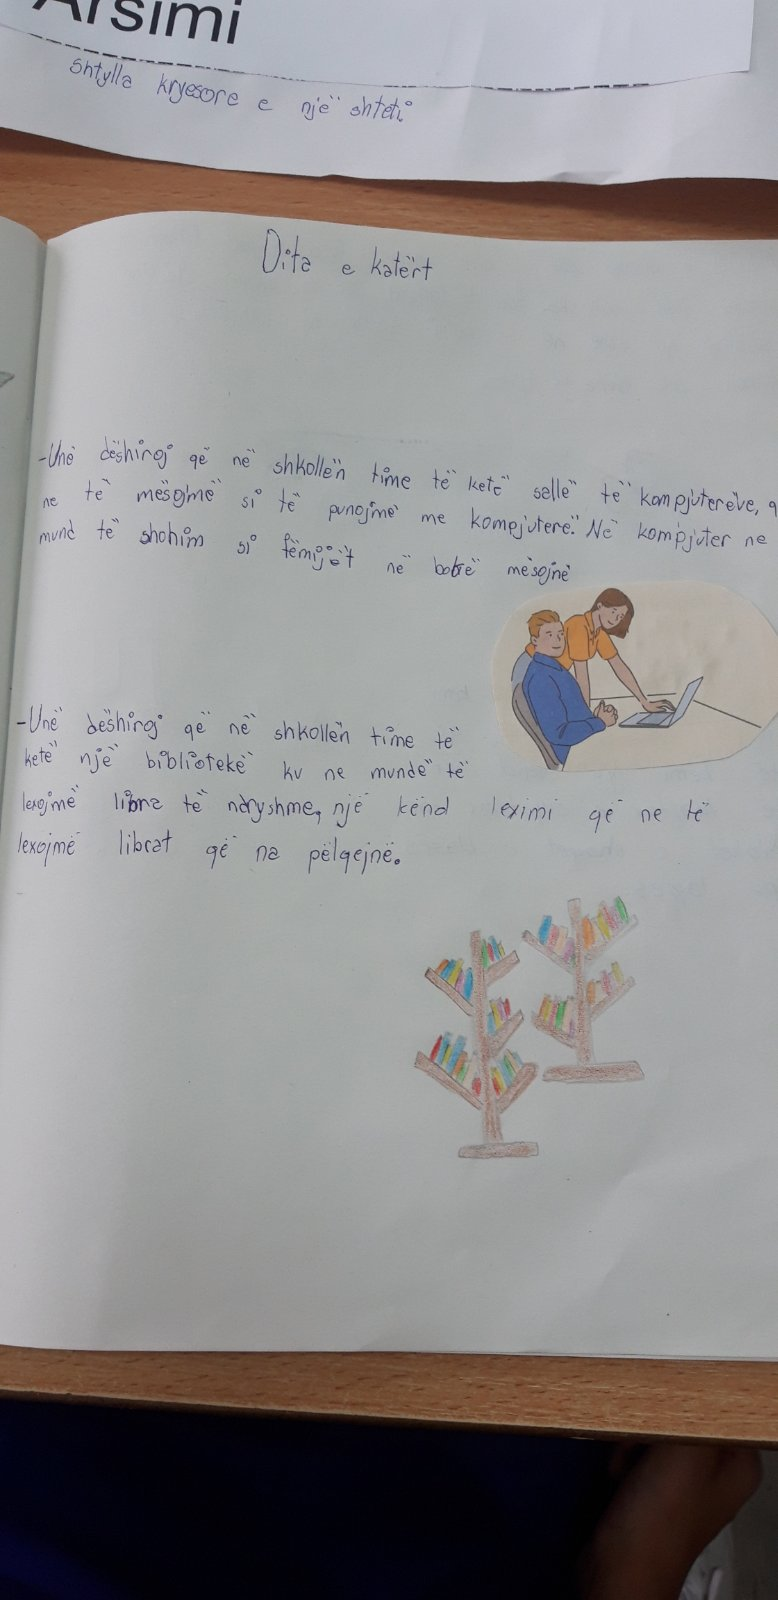 Arsimi
Shtylla kryesore e një shteti
Dita e katërt
-Unë dëshiroj që në shkollën time të ketë sallë të kompjuterëve,
ne të mësojmë si të punojmë me kompjuterë. Në kompjuter ne
mund të shohim si fëmijët në botë mësojnë
-Unë dëshiroj që në shkollën time të
ketë një bibliotekë ku ne mundë të
lexojmë libra të ndryshme, një kënd leximi që ne të
lexojmë librat që na pëlqejnë.